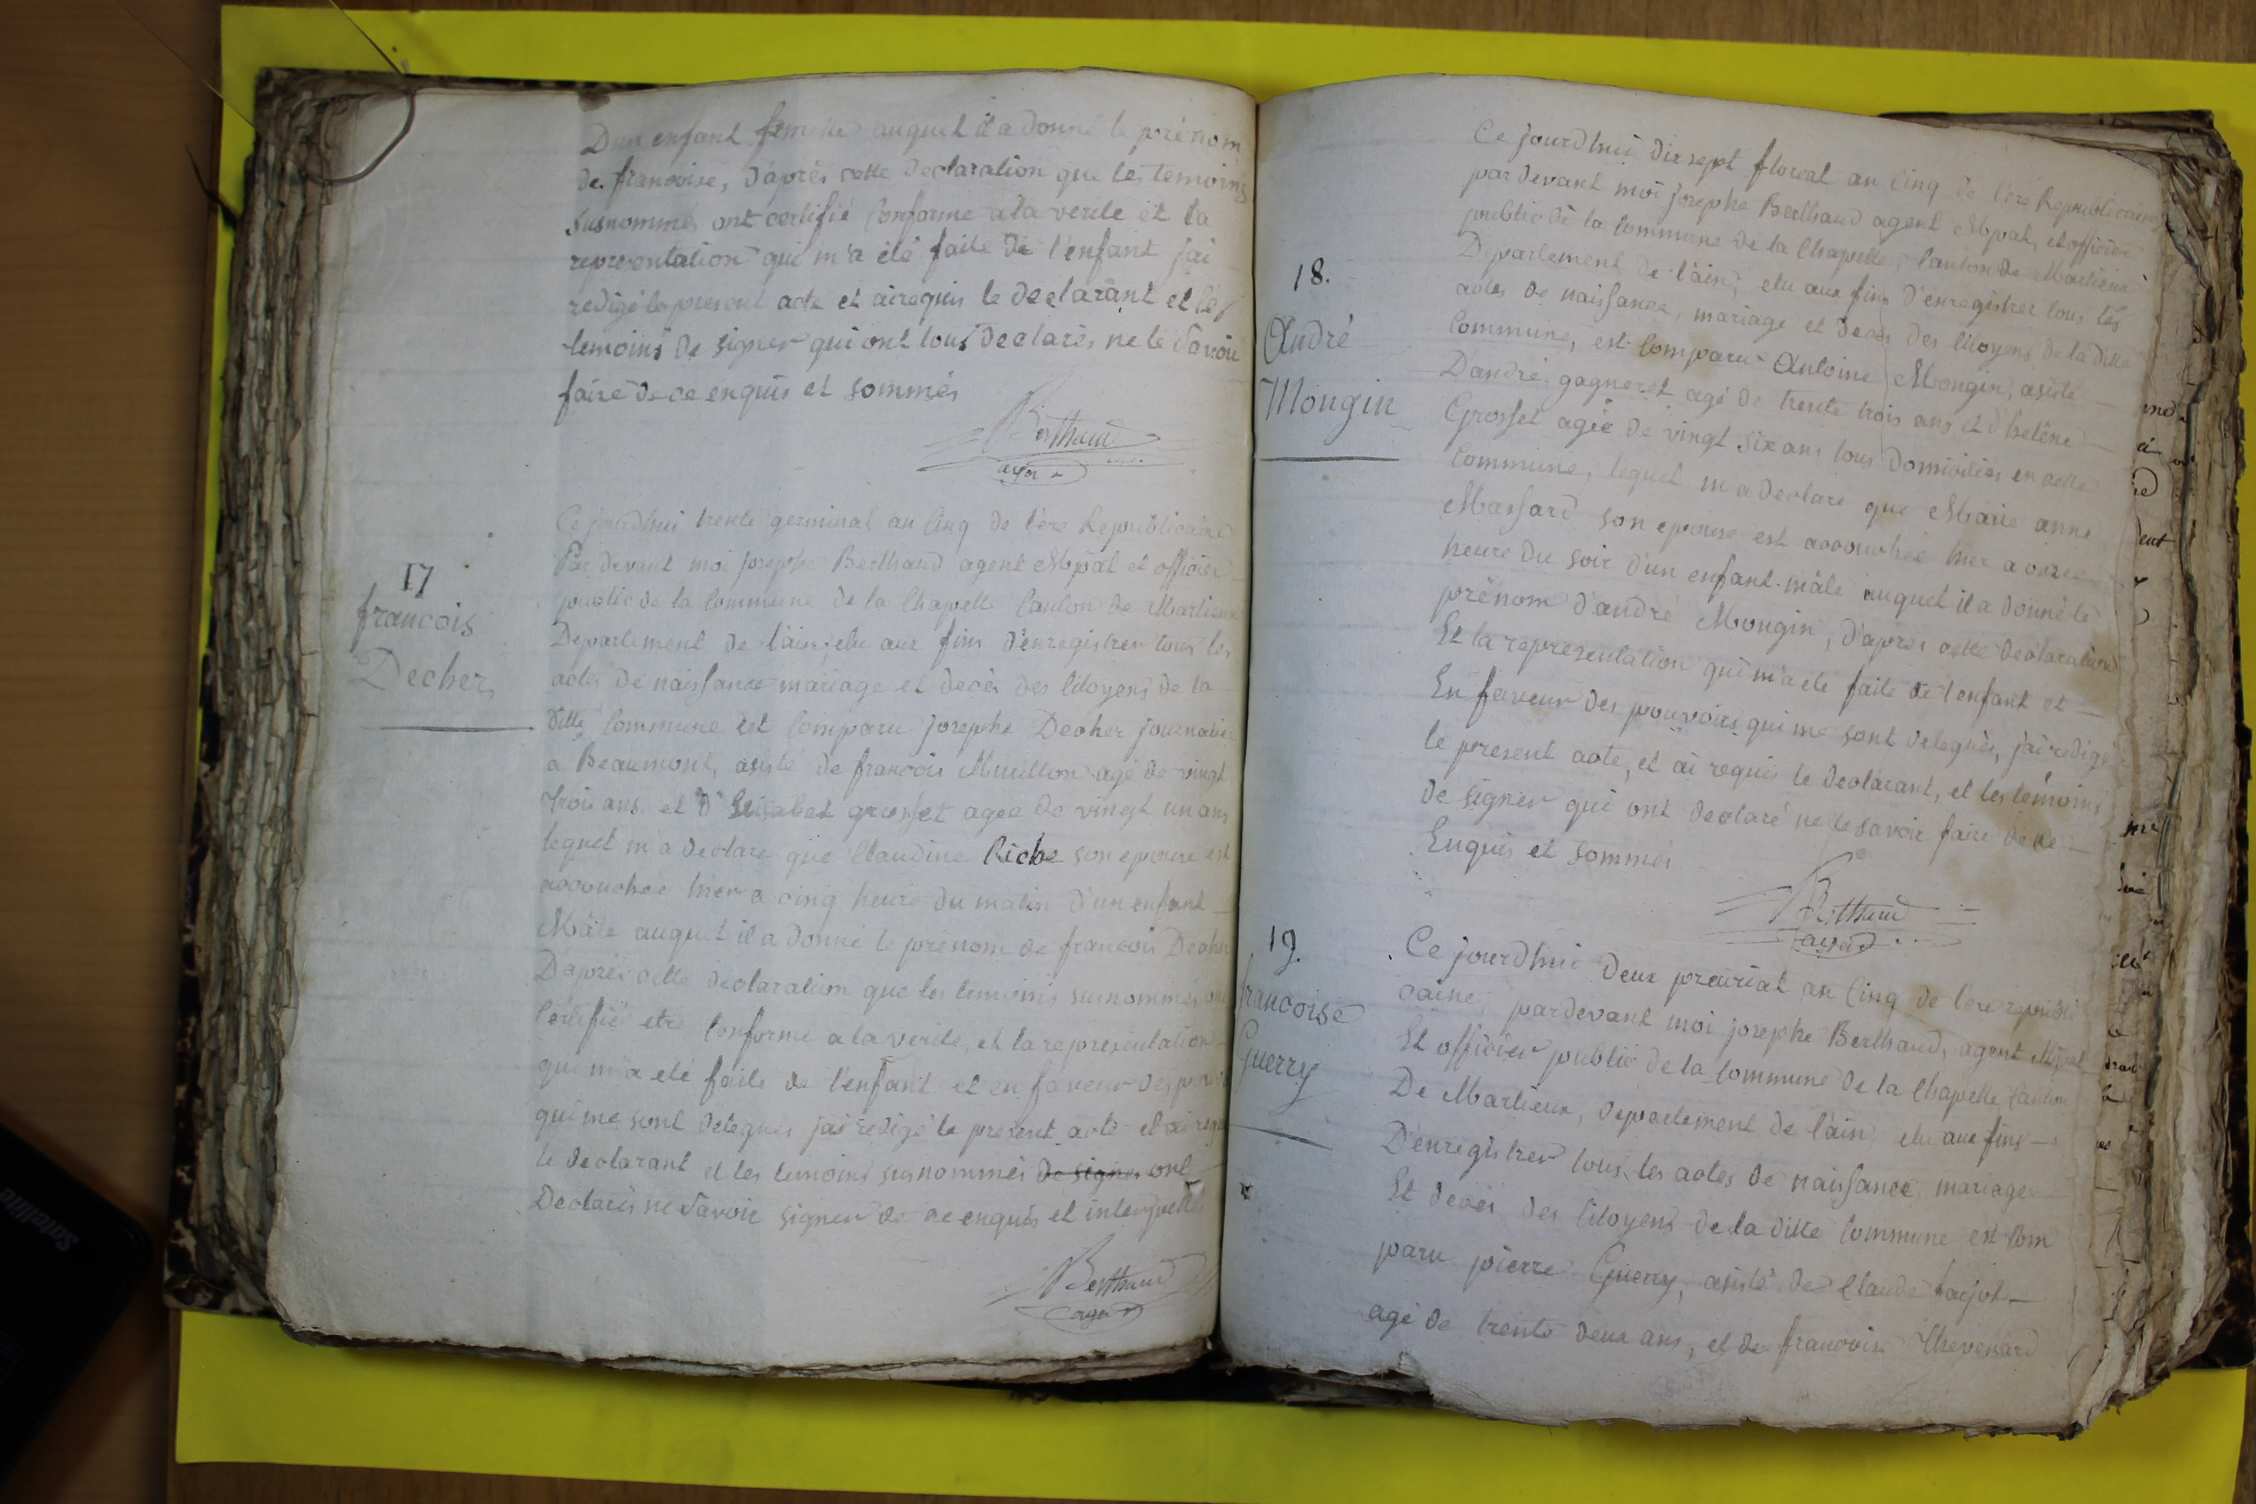 D'un enfant femelle auquel il a donné le prénom
de francoise, d'après cette declaration que les temoins
susnommés ont certifié conforme a la verité et la
representation qui m'a été faite de l'enfant j'ai
redigé le present acte et ai requis le declarant et les
temoins de signer qui ont tous declarés ne le savoir
faire de ce enquis et sommés
Berthaud
agent
17
francois
Decher
Ce jourdhui trente germinal an Cinq de l'ère Republicaine
Par devant moi josephe Berthaud agent Mpal et officier
public de la Commune de la Chapelle Canton de Marlieux
Departement de l'ain, elu aux fins d'enregistrer tous les
actes de naissance mariage et decès des Citoyens de la
ditte Commune est Comparu josephe Decher journalier
a Beaumont, asisté de francois Muillon agé de vingt
trois ans et d'Elisabet grosset agée de vingt un ans
lequel m'a declaré que Claudine Riche son epouse est
accouchée hier a cinq heure du matin d'un enfant
Mâle auquel il a donné le prénom de francois Decher
D'après cette declaration que les temoins susnommés ont
Certifié etre Conforme a la verité, et la representation
qui m'a eté faite de l'enfant et en faveur des pouvoirs
qui me sont delegués j'ai redigé le present acte et ai requis
le declarant et les temoins susnommés de signer ont
Declarés ne savoir signer de ce enquis et interpellés
Berthaud
agent
18.
André
Mongin
Ce jourdhui dix sept floreal an Cinq de l'ére Republicaine
par devant moi josephe Berthaud agent Mpal, et officier
public de la Commune de la Chapelle, Canton de Marlieux
Departement de l'ain, elu aux fins d'enregistrer tous les
actes de naissance, mariage et decès des Citoyens de la ditte
Commune, est Comparu Antoine Mongin, asisté
D'andré gagneret agé de trente trois ans et d'helène
Grosset agée de vingt six ans tous domiciliés en cette
Commune, lequel m'a declaré que Marie anne
Massard son epouse est accouchée hier a onze
heure du soir d'un enfant mâle auquel il a donné le
prénom d'andré Mongin, d'après cette declaration
Et la representation qui m'a eté faite de l'enfant et
En faveur des pouvoirs qui me sont delegués, j'ai redigé
le present acte, et ai requis le declarant, et les temoins
de signer qui ont declaré ne le savoir faire de ce
Enquis et sommés
Berthaud
agent
19.
francoise
Guerry
Ce jourdhui deux preurial an Cinq de l'ere republi
caine, pardevant moi josephe Berthaud, agent Mpal
Et officier public de la Commune de la Chapelle Canton
De Marlieux, departement de l'ain elu aux fins
D'enregistrer tous les actes de naissance mariage
Et decès des Citoyens de la ditte Commune est Com
paru pierre Guerry, asisté de Claude farjot
agé de trente deux ans, et de francoise Thevenard